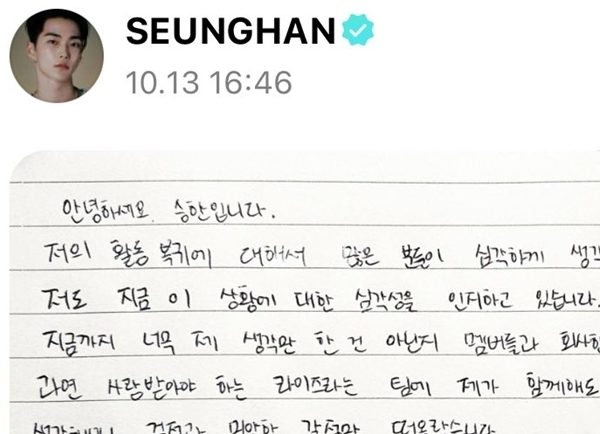 SEUNGHAN
10.13 16:46
안녕하세요. 승한입니다.
저의 활동 복귀에 대해서 많은 분들이 심각하게 생각
저도 지금 이 상황에 대한 심각성을 인지하고 있습니다.
지금까지 너무 제 생각만 한 건 아닌지 멤버들과 회사한
과연 사랑받아야 하는 라이즈라는 팀에 제가 함께해도
걱정과 미안한 감정만 떠오릅니다